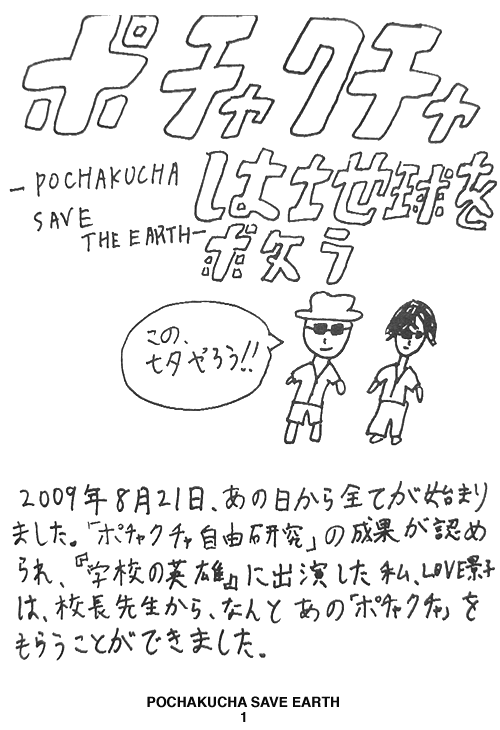 ポチャクチャ
は地球を
ボクう
－POCHAKUCHA
SAVE
THE EARTH－
この、
七夕やろう!!
2009年8月21日、あの日から全てが始まり
ました。「ポチャクチャ自由研究」の成果が認め
られ、『学校の英雄』に出演した私、LOVE景子
は、校長先生から、なんと あの「ポチャクチャ」を
もらうことができました。
POCHAKUCHA SAVE EARTH
1